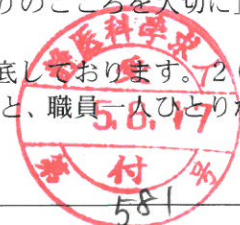 りのこころを大切に」
底しております。２
と、職員一人ひとり
医科学求人
5.8.17
付
号
581